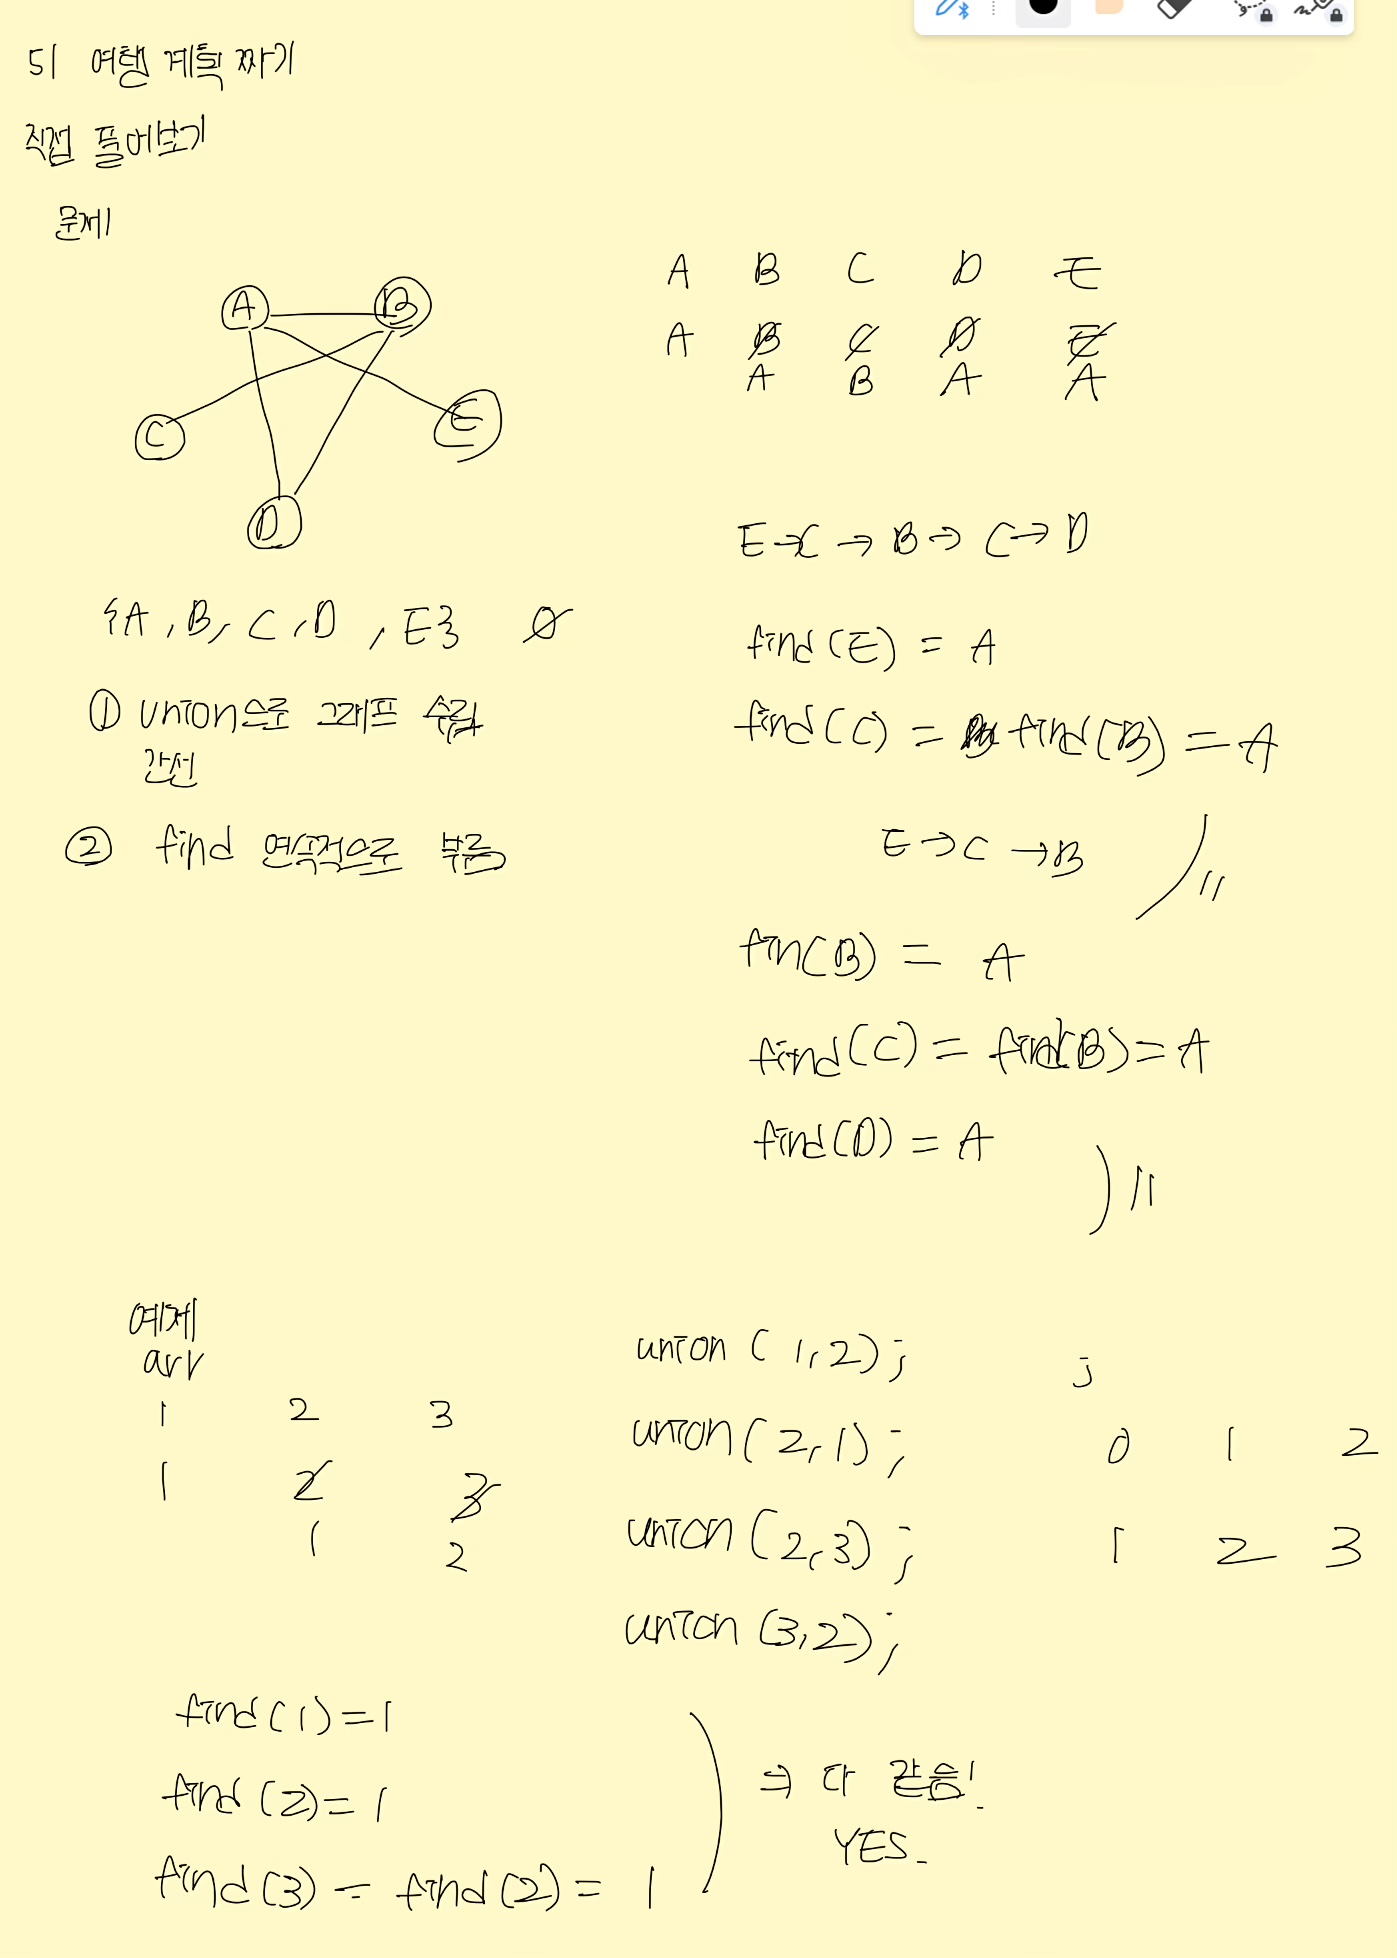 51 여행 계획 짜기
직접 풀어보기
문제
A B
C E
D
A B C D E
A B C D E
A B A A
E→C → B → C→ D
{A, B, C, D, E} Ø
① union으로 그래프 수립
간선
② find 연속적으로 부름
find(E) = A
find(C) = find(B) = A
E→C →B
fin(B) = A
find(C) = find(B) = A
find(D) = A
예제
arr
1 2 3
1 2 3
1 2
union ( 1, 2) ;
union( 2, 1) ;
union (2, 3) ;
union (3, 2) ;
j
0 1 2
1 2 3
find( 1) = 1
find (2) = 1
find (3) = find (2) = 1
⇒ 다 같음!
YES.